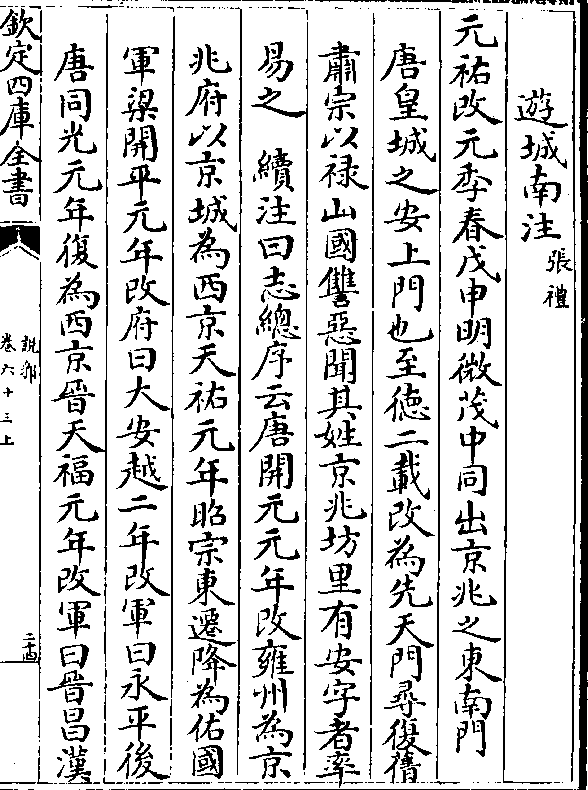 遊城南注
張禮
元祐改元季春戊申明微茂中同出京兆之東南門
唐皇城之安上門也至德二載改為先天門尋復舊
肅宗以祿山國讐惡聞其姓京兆坊里有安字者率
易之　續注曰志總序云唐開元元年改雍州為京
兆府以京城為西京天祐元年昭宗東遷降為佑國
軍梁開平元年改府曰大安越二年改軍曰永平後
唐同光元年復為西京晉天福元年改軍曰晉昌漢
欽定四庫全書
說郛
卷六十三上
二十四